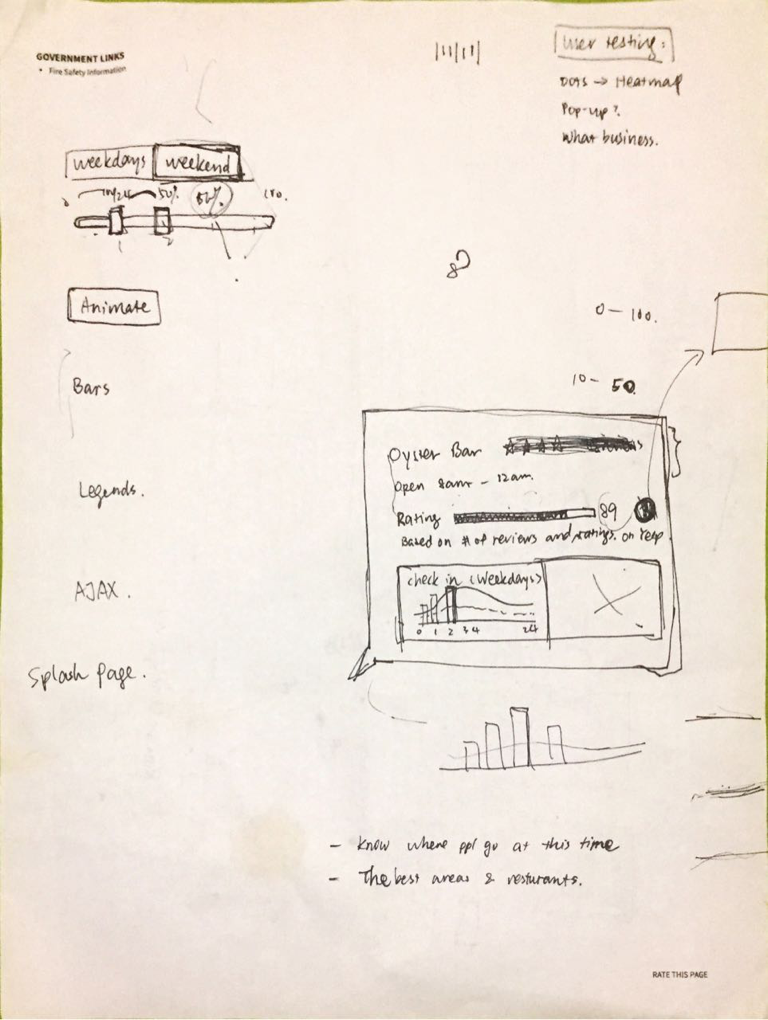 GOVERNMENT LINKS
• Fire Safety Information
User testing:
Dots → Heatmap
Pop-up?
What business.
weekdays weekend
50%
1 2
Animate
0 - 100.
10 - 50.
Bars
Oyster Bar
Open 8am - 12am.
Legends.
Rating 89
Based on # of reviews and ratings. on Yelp
check in (Weekdays)
0 1 2 3 4 24
AJAX.
Splash Page.
- Know where ppl go at this time
- The best areas & resturants.
RATE THIS PAGE